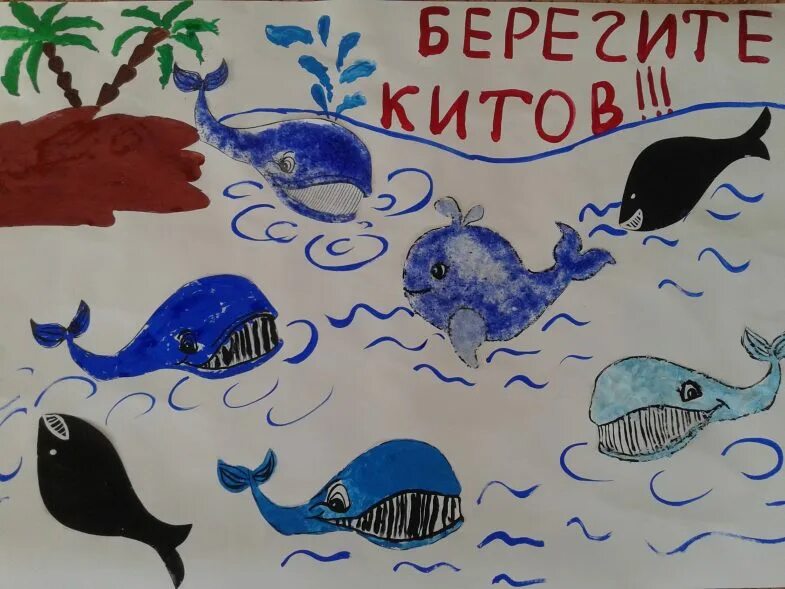 БЕРЕГИТЕ
КИТОВ!!!